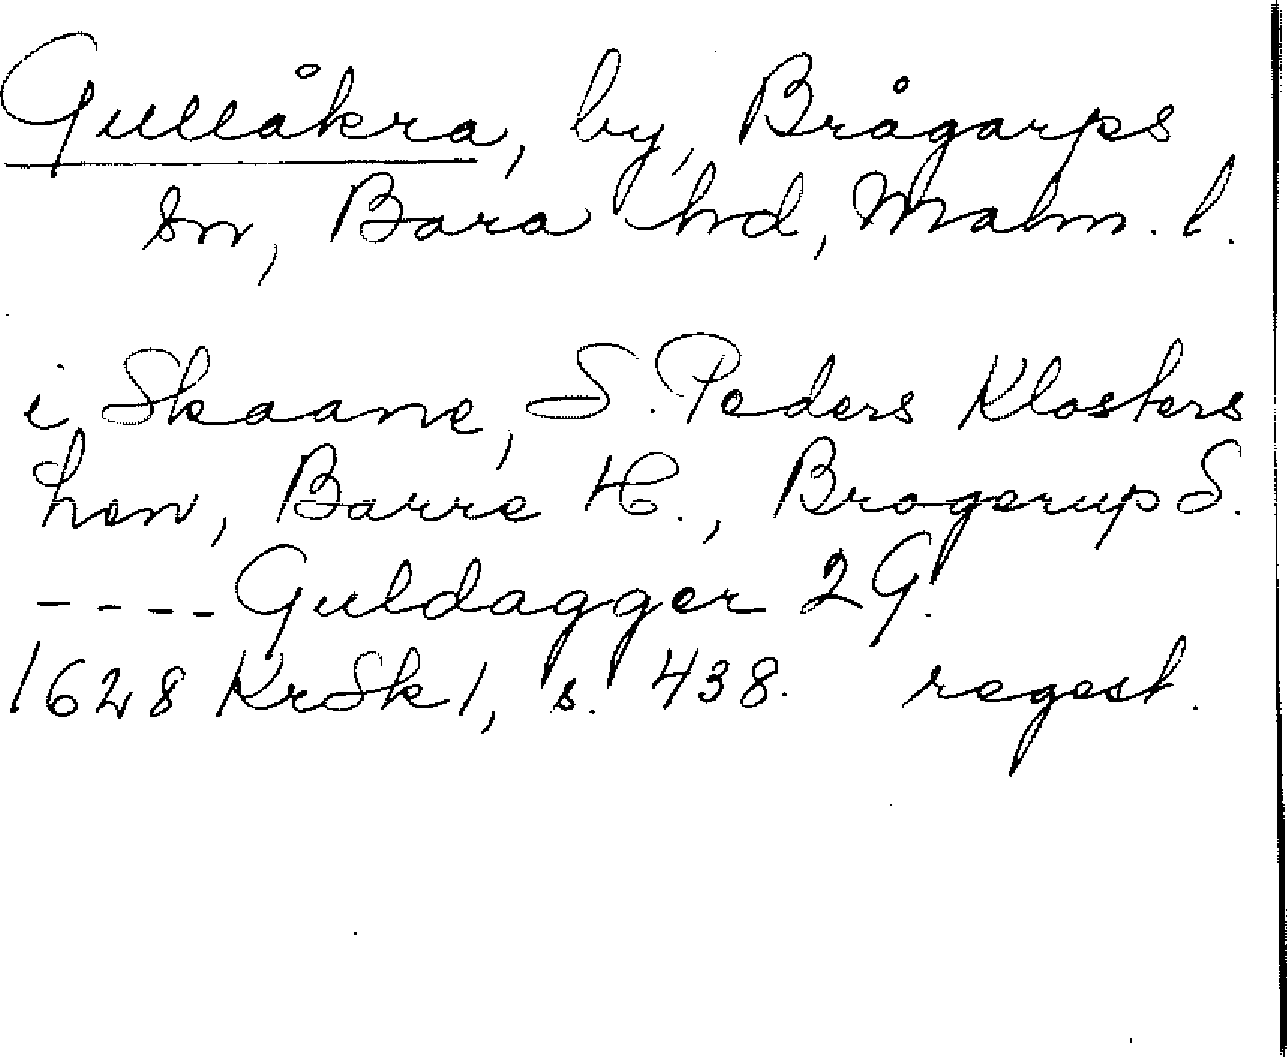 Gullåkra, by, Brågarps
sn, Bara hd, Malm. l.
i Skaane, S. Peders Klosters
Len, Barre H., Brogerup S.
---- Guldagger 2 G.
1628 KrSk 1, s. 438. regest.